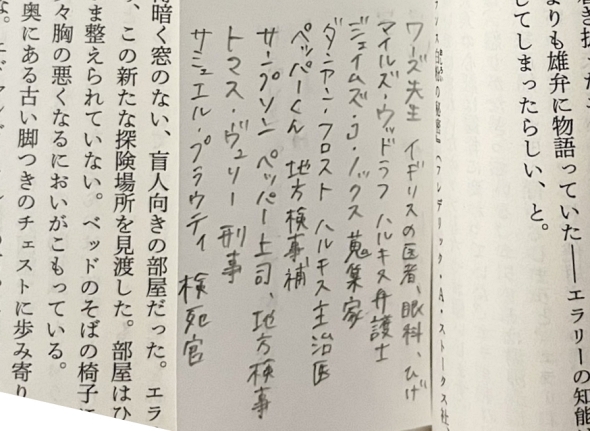 よりも雄弁に物語っていた――エラリーの知能
してしまったらしい、と。
の秘密』（フレデリック・A・ストークス社、
ワーズ先生 イギリスの医者、眼科、ひげ
マイルズ・ウッドラフ ハルキス弁護士
ジェイムズ・J・ノックス 蒐集家
ダンカン・フロスト ハルキス主治医
ペッパーくん 地方検事補
サンプソン ペッパー上司、地方検事
トマス・ヴェリー 刑事
サミュエル・プラウティ 検死官
暗く窓のない、盲人向きの部屋だった。エラ
、この新たな探険場所を見渡した。部屋はひ
ま整えられていない。ベッドのそばの椅子に
々胸の悪くなるにおいがこもっている。
奥にある古い脚つきのチェストに歩み寄り